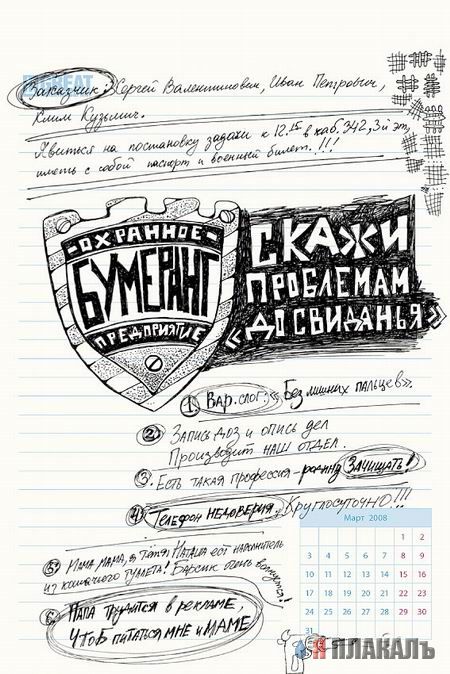 GREAT
Заказчик: Сергей Валентинович, Иван Петрович,
Клим Кузьмич.
Явиться на постановку задачи к 12.15 в каб. 342, 3й эт,
иметь с собой паспорт и военный билет.!!!
-ОХРАННОЕ-
БУМЕРАНГ
ПРЕДПРИЯТИЕ
СКАЖИ
ПРОБЛЕМАМ
«ДО СВИДАНЬЯ»
1 Вар. слог: «Без лишних пальцев».
2. Запись доз и опись дел
Производит наш отдел.
3. Есть такая профессия - родину зачищать!
4) Телефон недоверия. Круглосуточно!!!
5) Мама мама, а тётя Наташа ест наполнитель
из кошачьего туалета! Барсик очень волнуется!!
6. Папа трудится в рекламе,
чтоб питаться мне и маме.
Март 2008
1 2
3 4 5 6 7 8 9
10 11 12 13 14 15 16
17 18 19 20 21 22 23
24 25 26 27 28 29 30
31
Я ПЛАКАЛЪ